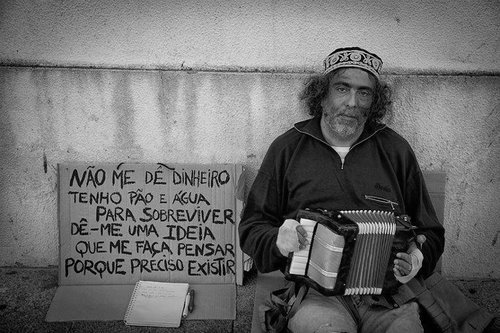 NÃO ME DÊ DINHEIRO
TENHO PÃO E ÁGUA
PARA SOBREVIVER
DÊ-ME UMA IDEIA
QUE ME FAÇA PENSAR
PORQUE PRECISO EXISTIR